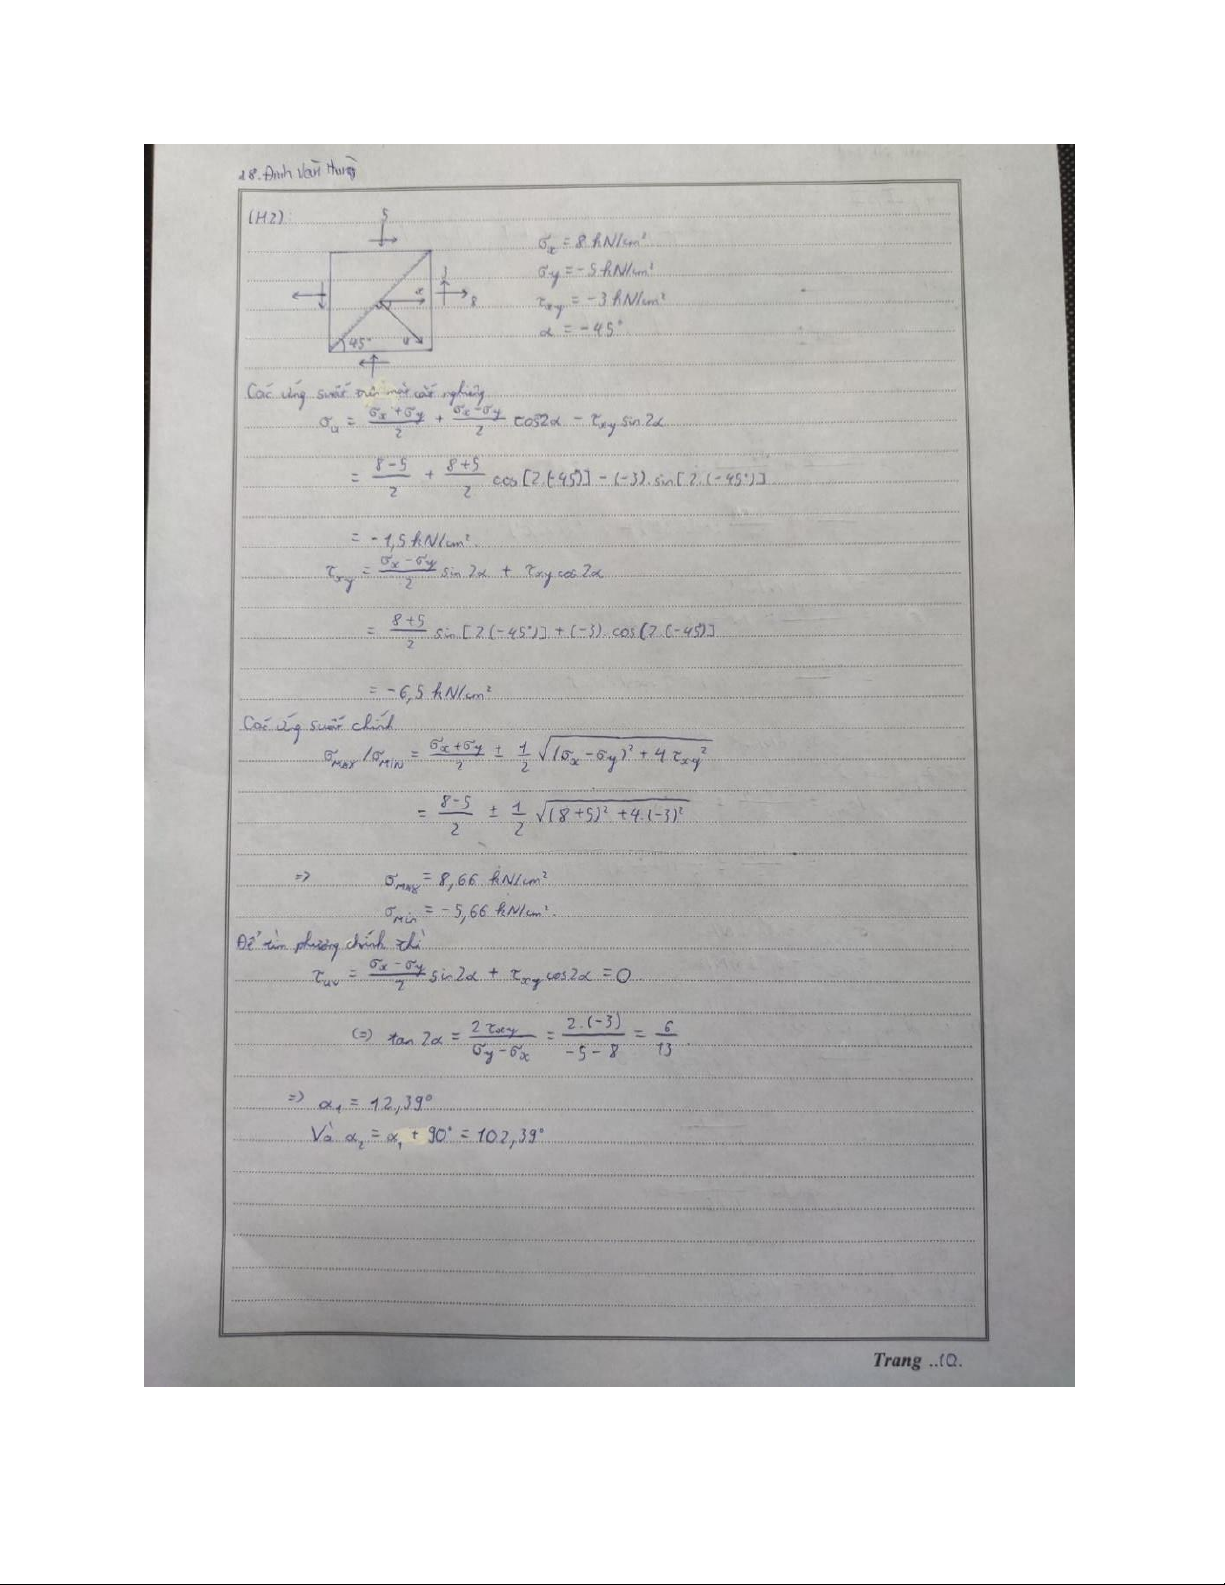 28. Đinh Văn
(H2)
5
σx = 8 kN/cm²
σy = -5 kN/cm²
3
x
8
τxy = -3 kN/cm²
α = -45°
45°
u
Các ứng suất trên mặt cắt nghiêng
σu = (σx + σy)/2 + (σx - σy)/2 cos2α - τxy sin2α
= (8-5)/2 + (8+5)/2 cos[2.(-45°)] - (-3).sin[2.(-45°)]
= -1,5 kN/cm².
τxy = (σx - σy)/2 sin2α + τxy cos2α
= (8+5)/2 sin[2.(-45°)] + (-3).cos[2.(-45°)]
= -6,5 kN/cm²
Các ứng suất chính
σMAX/σMIN = (σx + σy)/2 ± 1/2 √((σx - σy)² + 4τxy²)
= (8-5)/2 ± 1/2 √((8+5)² + 4.(-3)²)
=> σMAX = 8,66 kN/cm²
σMin = -5,66 kN/cm².
Để tìm phương chính thì
τuv = (σx - σy)/2 sin2α + τxy cos2α = 0
(=) tan2α = 2τxy/(σy - σx) = 2.(-3)/(-5-8) = 6/13.
=> α₁ = 12,39°
Và α₂ = α₁ + 90° = 102,39°
Trang ..10.